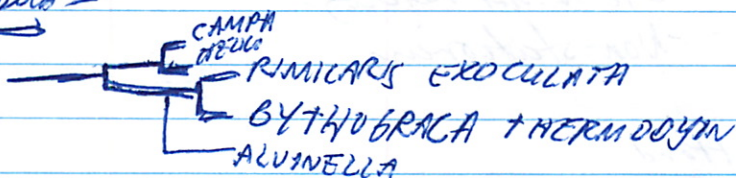 CAMPA
RIMICARIS EXOCULATA
BYTHOGRAEA THERMODYN
ALVINELLA